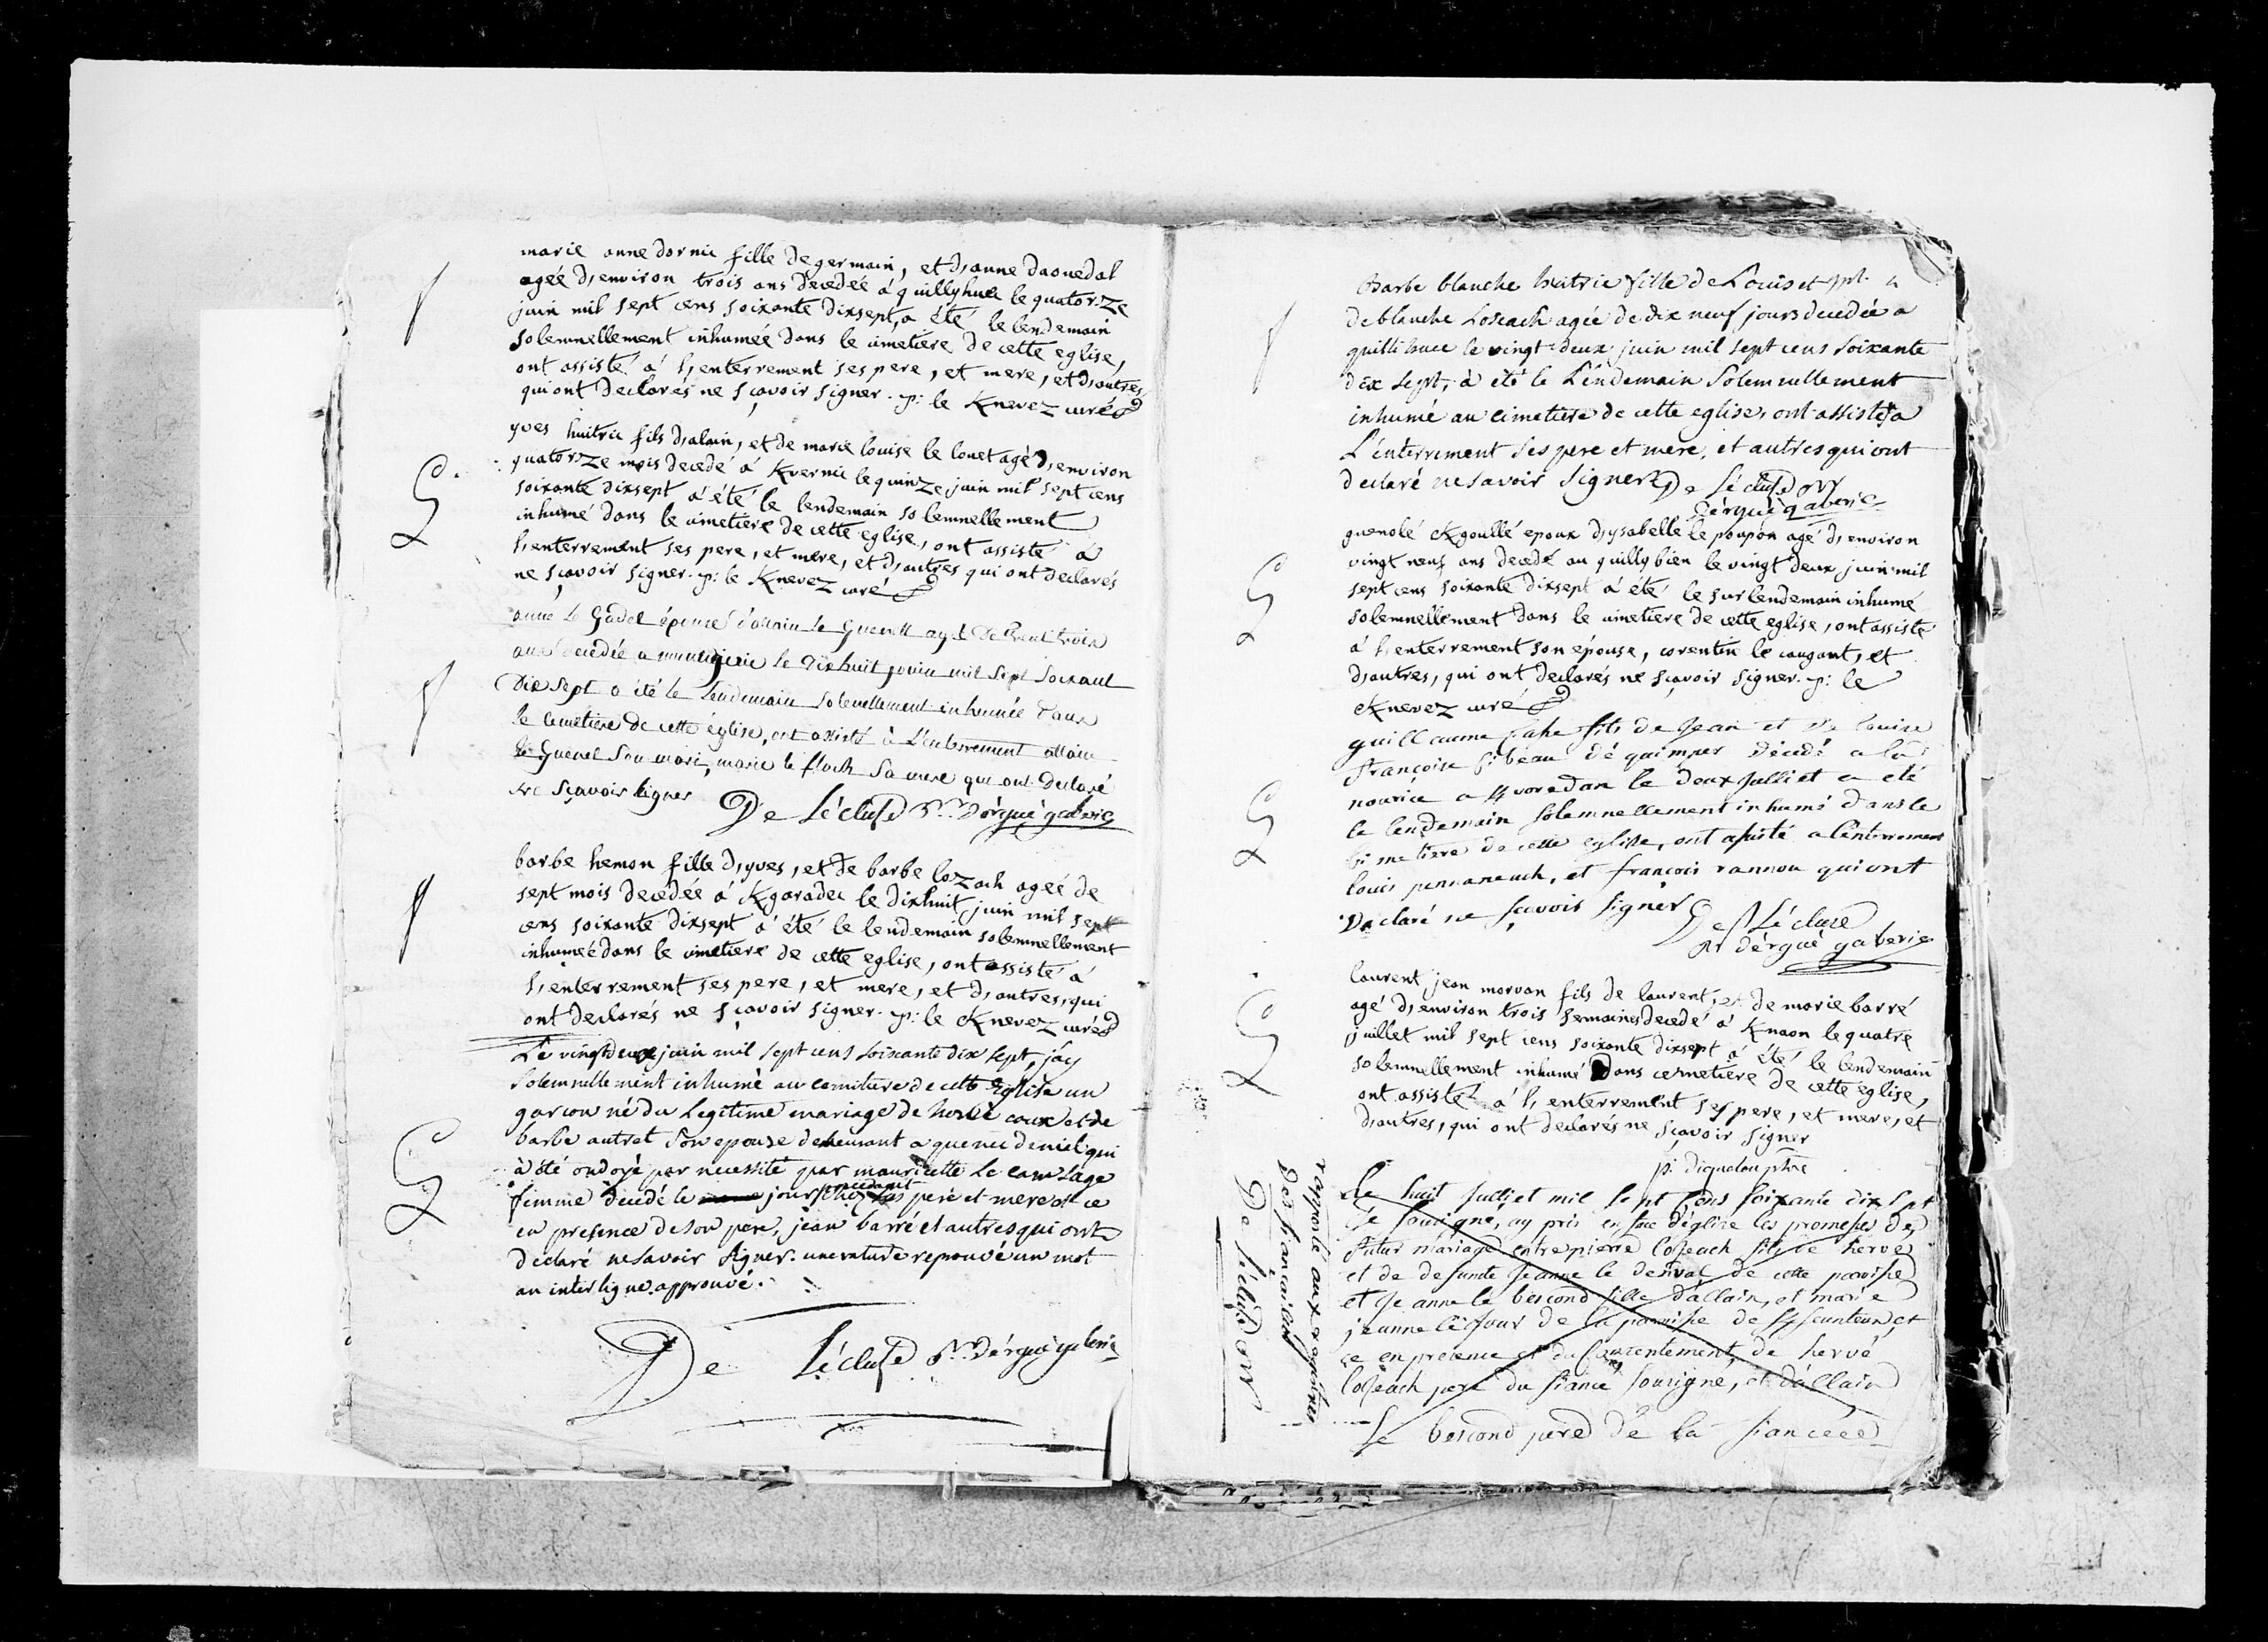 marie anne dornic fille de germain, et d,anne daouedal
ageé d,environ trois ans decedée á quillyhuec le quatorze
juin mil sept cens soixante dixsept, a été le lendemain
solemnellement inhumée dans le cimetiere de cette eglise,
ont assisté á l,enterrement ses pere, et mere, et d,autres,
qui ont declarés ne sçavoir signer. p: le Knevez curé
yves huitric fils d,alain, et de marie louise le louet agé d,environ
quatorze mois decedé á Kvernic le quinze juin mil sept cens
soixante dixsept á été le lendemain solemnellement
inhumé dans le cimetiere de cette eglise, ont assisté á
l,enterrement ses pere, et mere, et d,autres qui ont declarés
ne sçavoir signer. p: le Knevez curé
anne le Gadel épouse d'allain le Guenel agé de trent trois
ans decedée a le dixhuit jouin mil sept soixant
Dix sept a été le lendemain solenellement inhumée dans
le cemetiere de cette église, ont assisté à L'enterrement allain
le Guenel son mari, marie le floch sa mere qui ont declaré
ne sçavoir signer De Lécluse Rr. dérgué gaberic
barbe hemon fille d,yves, et de barbe lozach ageé de
sept mois decedée á Kgaradec le dixhuit juin mil sept
cens soixante dixsept á été le lendemain solemnellement
inhumeé dans le cimetiere de cette eglise, ont assisté á
l,enterrement ses pere, et mere, et d,autres, qui
ont declarés ne sçavoir signer. p: le Knevez curé
Le vingtdeux juin mil sept cens soixante dix sept, jay
solemnellement inhumé au cemitiere de cette Eglise un
garcon né du Legitime mariage de hervé caux et de
barbe autret son epouse demeurant a quenec deniel qui
à été ondoyé par necessité par mauricette Le cam sage
femme decedé le jour precedent chez ses pere et mere et ce
en presence de son pere, jean barré et autres qui ont
declaré ne savoir signer. une rature repouvé un mot
an interligne approuvé.
De Lécluse Rr. dérgué gaberic
Barbe blanche huitric fille de Louis et
de blanche Loseach agée de dix neuf jours decedée a
quillihuec le vingt deux juin mil sept cens soixante
dix sept, à été le Lendemain Solemnellement
inhumé au cimetiere de cette eglise, ont assistés a
L'enterrement ses pere et mere, et autres qui ont
declaré ne savoir signer De Lécluse Rr
dérgué gaberic
guenolé Kgoullé epoux d,ysabelle le poupon agé d,environ
vingt neuf ans decedé au quillybien le vingt deux juin mil
sept cens soixante dixsept á été le surlendemain inhumé
solemnellement dans le cimetiere de cette eglise, ont assisté
á l,enterrement son épouse, corentin le caugant, et
d,autres, qui ont declarés ne sçavoir signer. p: le
Knevez curé
guillaume fils de Jean et de louise
françoise de quimper decedé a la
nourice a le deux Julliet a eté
le lendemain solemnellement inhumé dans le
cimetiere de cette eglise, ont assisté a l'enterrement
louis pennaneuch, et francois rannou qui ont
declaré ne sçavoir signer De Lécluse
Rr dérgué gaberic
laurent jean morvan fils de laurent, et de marie barré
agé d,environ trois semaines decedé á Knaon le quatre
juillet mil sept cens soixante dixsept á été le lendemain
solemnellement inhumé Dans cemetiere de cette eglise,
ont assisté á l,enterrement ses pere, et mere, et
d,autres, qui ont declarés ne sçavoir signer
p: diquelou ptre
Le huit Julliet mil sept cens soixante dix sept
Je sousigné, ay pris en face d'église les promesses de
futur mariage entre pierre loseach fils de herve
et de defunte Jeanne le dérval de cette paroisse
et Jeanne le bescond fille d'allain, et marie
jeanne de la paroisse de et
ce en presence et du consentement de hervé
loseach pere du fiancé sousigne, et d'allain
le bescond pere de la fianceé
rapporté aux registres
des fiancailles
De Lécluse Rr